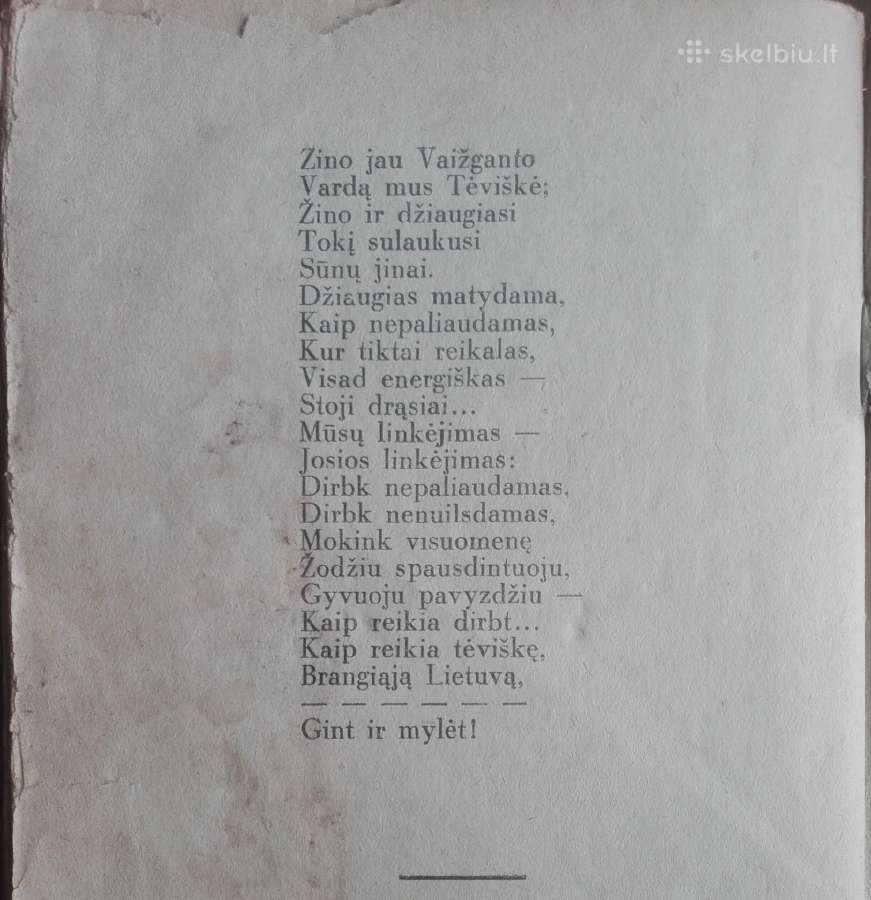 skelbiu.lt
Zino jau Vaižganto
Vardą mus Tėviškė;
Žino ir džiaugiasi
Tokį sulaukusi
Sūnų jinai.
Džiaugias matydama,
Kaip nepaliaudamas,
Kur tiktai reikalas,
Visad energiškas —
Stoji drąsiai...
Mūsų linkėjimas —
Josios linkėjimas:
Dirbk nepaliaudamas,
Dirbk nenuilsdamas,
Mokink visuomenę
Žodžiu spausdintuoju,
Gyvuoju pavyzdžiu —
Kaip reikia dirbt...
Kaip reikia tėviškę,
Brangiąją Lietuvą,
— — — — — —
Gint ir mylėt!